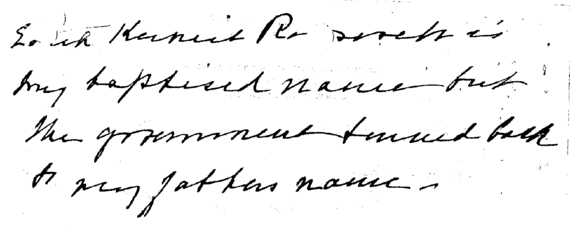 is
my baptised name but
the government turned back
to my fathers name.